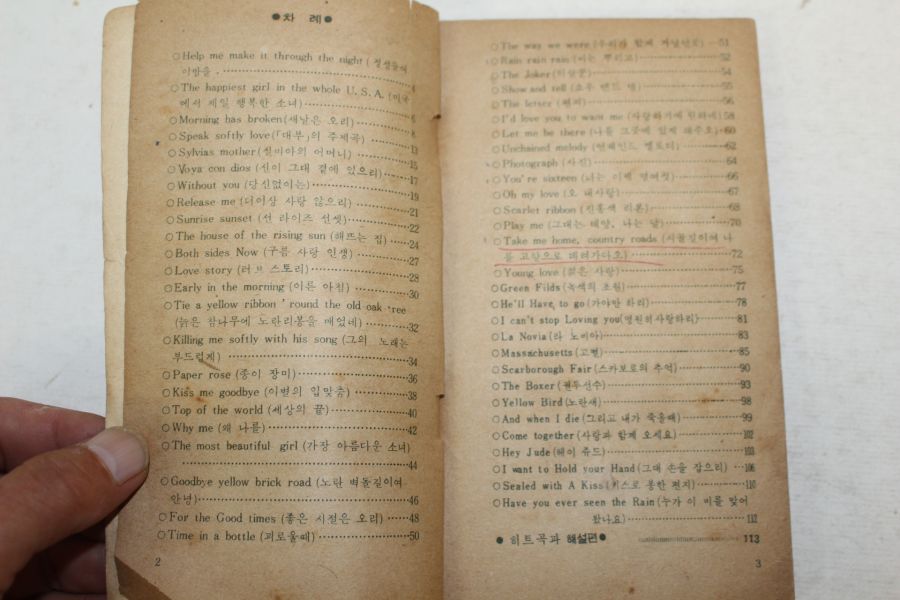 ●차 례●
○Help me make it through the night (
이밤을 ........ 4
○The happiest girl in the whole U. S. A. (미국
에서 제일 행복한 소녀)........ 6
○Morning has broken(새날은 오리)........
○Speak softly love(「대부」의 주제곡)........13
○Sylvias mother(실비아의 어머니)........15
○Voya con dios (신이 그대 곁에 있으리)........17
○Without you (당신없이는)........19
○Release me (더이상 사랑 않으리)........21
○Sunrise sunset (선 라이즈 선셋)........22
○The house of the rising sun (해뜨는 집)........24
○Both sides Now (구름 사랑 인생)........27
○Love story (러브 스토리)........28
○Early in the morning (이른 아침)........30
○Tie a yellow ribbon ' round the old oak ree
(늙은 참나무에 노란리봉을 매었네)........32
○Killing me softly with his song (그의 노래는
부드럽게)........34
○Paper rose (종이 장미)........36
○Kiss me goodbye (이별의 입맞춤)........38
○Top of the world (세상의 끝)........40
○Why me (왜 나를)........42
○The most beautiful girl (가장 아름다운 소녀)
........44
○Goodbye yellow brick road (노란 벽돌길이여
안녕)........46
○For the Good times (좋은 시절은 오리)........48
○Time in a bottle (괴로울때)........50
2
○The way we were (우리가 함께 )...51
○Rain rain rain (비는 뿌리고)........52
○The Joker(어릿꾼)........54
○Show and tell (쇼우 앤드 텔)........55
○The letter (편지)........56
○I'd love you to want me (사랑하기에 원하네) 58
○Let me be there (나를 그곳에 있게 해주오)...60
○Unchained melody (언체인드 멜로디)........62
○Photograph (사진)........64
○You're sixteen (너는 이제 열여섯)........66
○Oh my love (오 내사랑)........67
○Scarlet ribbon (진홍색 리본)........68
○Play me (그대는 태양, 나는 달)........70
○Take me home, country roads (시골길이여 나
를 고향으로 데려가다오)........72
○Young love (젊은 사랑)........75
○Green Filds (녹색의 초원)........77
○He'll Have to go (가야만 하리)........78
○I can't stop Loving you(영원히사랑하리)........81
○La Novia (라 노비아)........83
○Massachusetts (고별)........85
○Scarborough Fair (스카보로의 추억)........90
○The Boxer (권투선수)........93
○Yellow Bird (노란새)........98
○And when I die (그리고 내가 죽을때)........99
○Come together (사랑과 함께 오세요)........102
○Hey Jude (헤이 쥬드)........103
○I want to Hold your Hand (그대 손을 잡으리) ...106
○Sealed with A Kiss (키스로 봉한 편지)........110
○Have you ever seen the Rain (누가 이 비를 맞어
왔나요)........112
● 히트곡과 해설편● 113
3